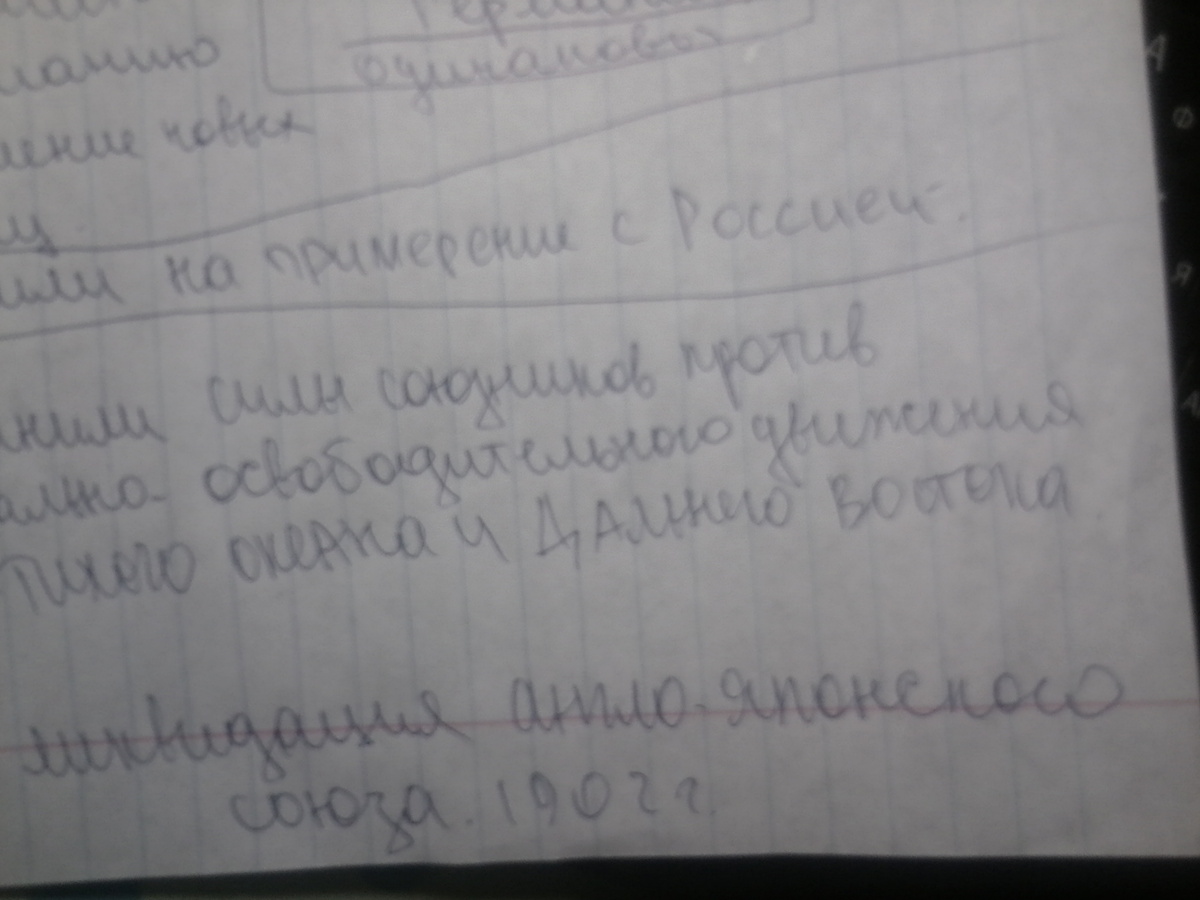 одинаковых
новых
на примерение с Россией.
силы союзников против
освободительного движения
Тихого океана и Дальнего Востока.
ликвидация англо-японского
союза. 1902 г.